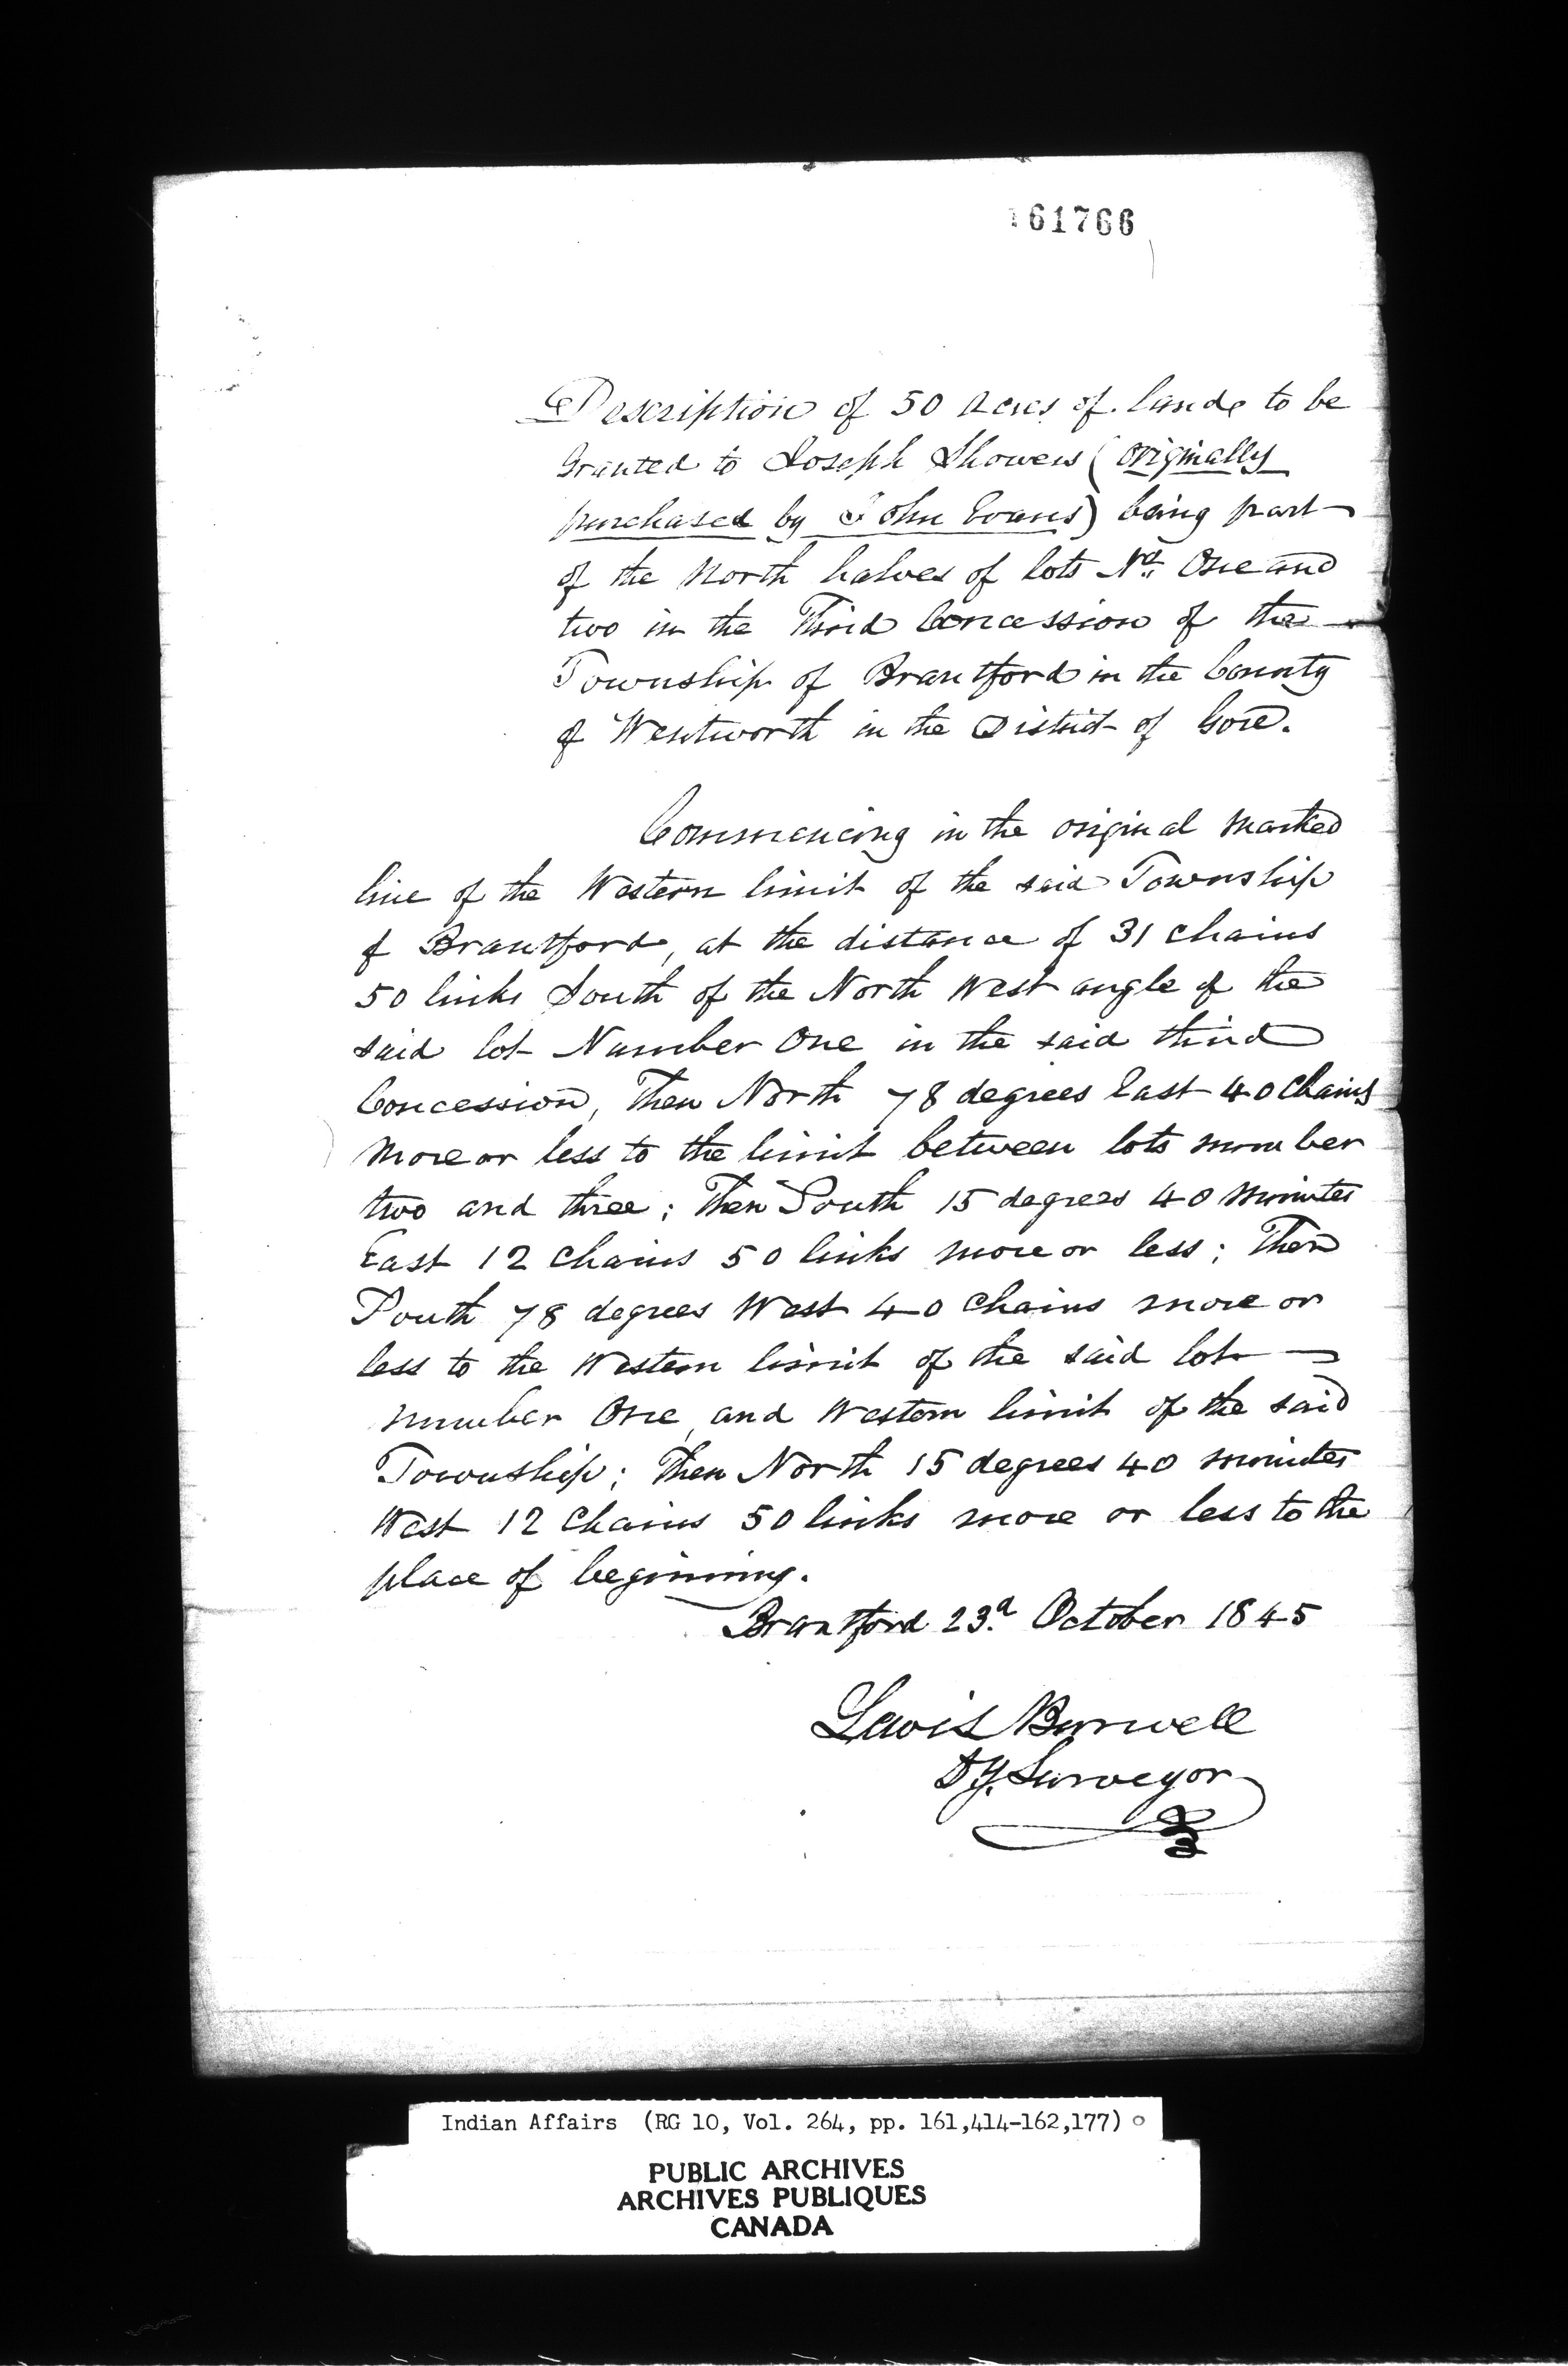 161766
Description of 50 Acres of land to be
Granted to Joseph Showers (originally
purchased by John Evans) being part
of the North halves of lots No. One and
two in the Third Concession of the
Township of Brantford in the County
of Wentworth in the District of Gore.
Commencing in the original marked
line of the Western limit of the said Township
of Brantford, at the distance of 31 chains
50 links South of the North West angle of the
said lot Number One in the said third
Concession, Then North 78 degrees East 40 Chains
more or less to the limit between lots number
two and three; Then South 15 degrees 40 minutes
East 12 Chains 50 links more or less; Then
South 78 degrees West 40 Chains more or
less to the Western limit of the said lot
number One, and Western limit of the said
Township; Then North 15 degrees 40 minutes
West 12 Chains 50 links more or less to the
place of beginning.
Brantford 23d. October 1845
Lewis Burwell
Dy. Surveyor
Indian Affairs (RG 10, Vol. 264, pp. 161,414-162,177)
PUBLIC ARCHIVES
ARCHIVES PUBLIQUES
CANADA